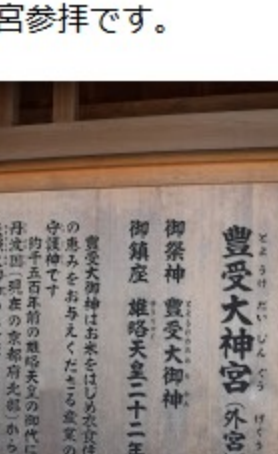 宮参拝です。
豊受大神宮（外宮
とようけだいじんぐう げくう
御祭神 豊受大御神
御鎮座 雄略天皇二十二年
豊受大御神はお米をはじめ衣食住
の恵みをお与えくださる産業の
守護神です
約千五百年前の雄略天皇の御代に
丹波国（現在の京都府北部）から